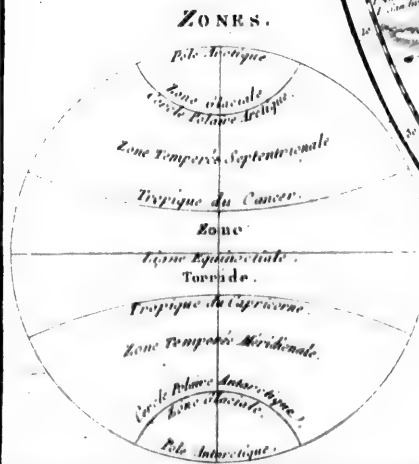 ZONES.
Pole Arctique
Zone Glaciale
Cercle Polaire Arctique.
Zone Temperée Septentrionale
Tropique du Cancer.
Zone
Ligne Equinoctiale.
Torride.
Tropique du Capricorne.
Zone Temperée Méridionale.
Cercle Polaire Antarctique.
Zone Glaciale.
Pole Antarctique.